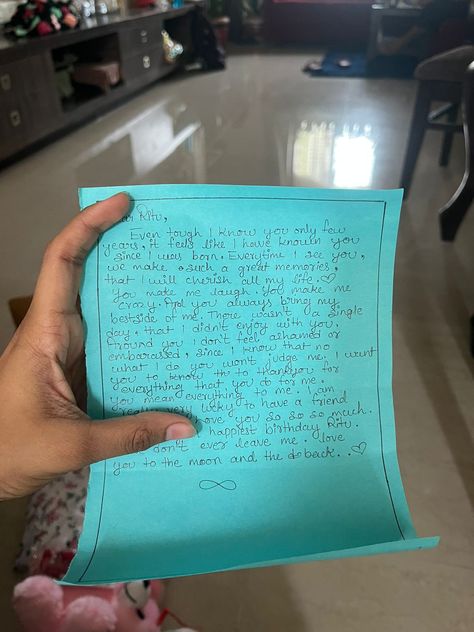 ar Ritu,
Even tough I know you only few
years, it feels like I have known you
since I was born. Everytime I see you,
we make such a great memories,
that I will cherish all my life. ♡
You make me laugh. You make me
crazy. And you always bring my
bestside of me. There wasn't a single
day, that I didn't enjoy with you.
Around you I don't feel ashamed or
embarrassed, since I know that no
what I do you won't judge me. I want
you to know to thankyou for
everything that you do for me.
You mean everything to me. I am
really very lucky to have a friend
love you so so so much.
happiest birthday Ritu.
don't ever leave me. love
you to the moon and the back.. ♡
∞